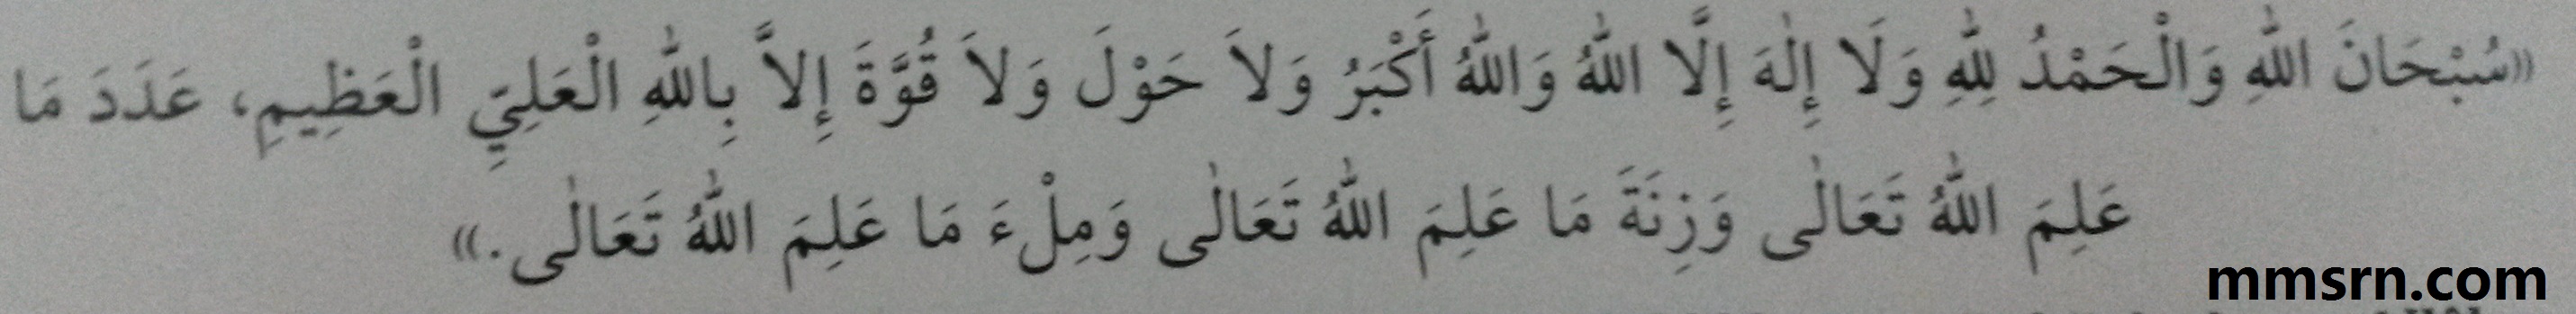 «سُبْحَانَ اللّٰهِ وَالْحَمْدُ لِلّٰهِ وَلَا إِلٰهَ إِلَّا اللّٰهُ وَاللّٰهُ أَكْبَرُ وَلاَ حَوْلَ وَلاَ قُوَّةَ إِلاَّ بِاللّٰهِ الْعَلِيِّ الْعَظِيمِ، عَدَدَ مَا
عَلِمَ اللّٰهُ تَعَالٰى وَزِنَةَ مَا عَلِمَ اللّٰهُ تَعَالٰى وَمِلْءَ مَا عَلِمَ اللّٰهُ تَعَالٰى.»
mmsrn.com